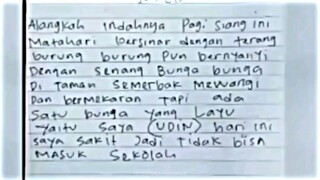 Alangkah indahnya Pagi siang ini
Matahari bersinar dengan terang
burung burung Pun bernyanyi
Dengan senang Bunga bunga
Di taman semerbak mewangi
Dan bermekaran tapi ada
Satu bunga yang Layu
Yaitu saya (UDIN) hari ini
saya sakit Jadi Tidak bisa
MASUK SekoLah